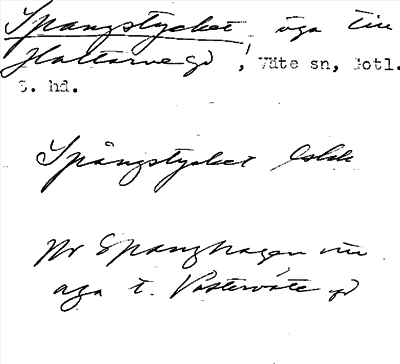 Spangstycket, äga till
Hallarve gd, Väte sn, Gotl.
S. hd.
Spångstycket
Nr Spanghagen
aga t. Västerväte gd